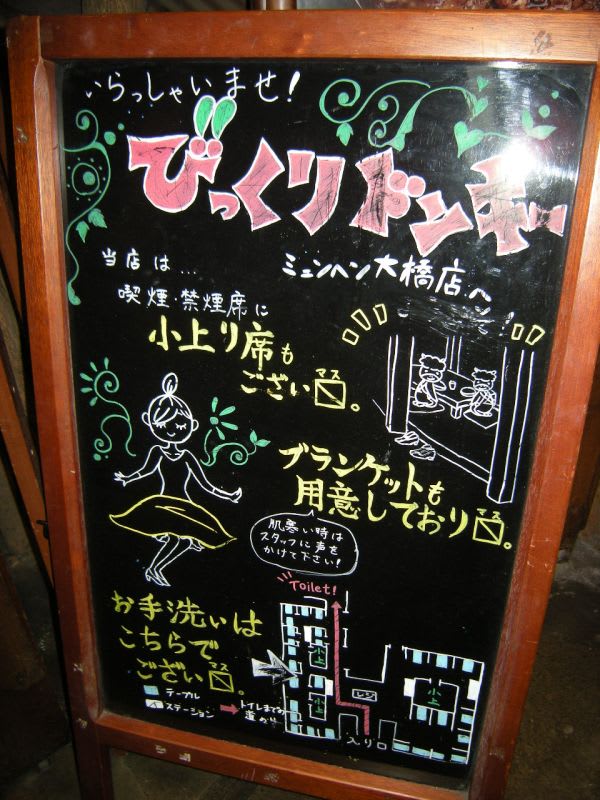 いらっしゃいませ!
びっくりドンキー
ミュンヘン大橋店へ
当店は…
喫煙・禁煙席に
小上り席も
ござい〼。
マス
ブランケットも
用意しており〼。
マス
肌寒い時は
スタッフに声を
かけて下さい!
お手洗いは
こちらで
ござい〼。
マス
Toilet!
小上
小上
小上
レジ
入り口
テーブル
ステーション
トイレまでの
道のり